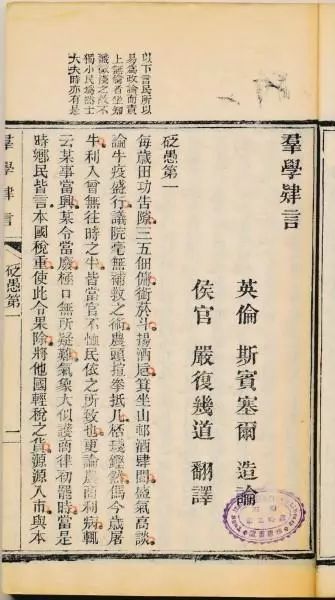 羣學肄言
英倫 斯賓塞爾 造論
侯官 嚴復幾道 翻譯
砭愚第一
每歲田功告隙三五佃傭銜菸斗揚酒巵箕坐山邨酒肆閒盛氣高談
論牛疫盛行議院毫無補救之術農頭揎拳抵几桮琖鏗然偶今歲屠
牛利人曾無往時之半皆當官不恤民依之所致也更論農商利病輒
云某事當興某令當廢極口無所疑難氣象大似護商律初罷時當是
時鄉民皆言本國稅重使此令果除將他國輕稅之貨源源入市與本
以下言民所以
易為政論而責
上無論者坐知
識微淺之故不
獨小民為然士
大夫時亦有是
羣學肄言
砭愚第
一